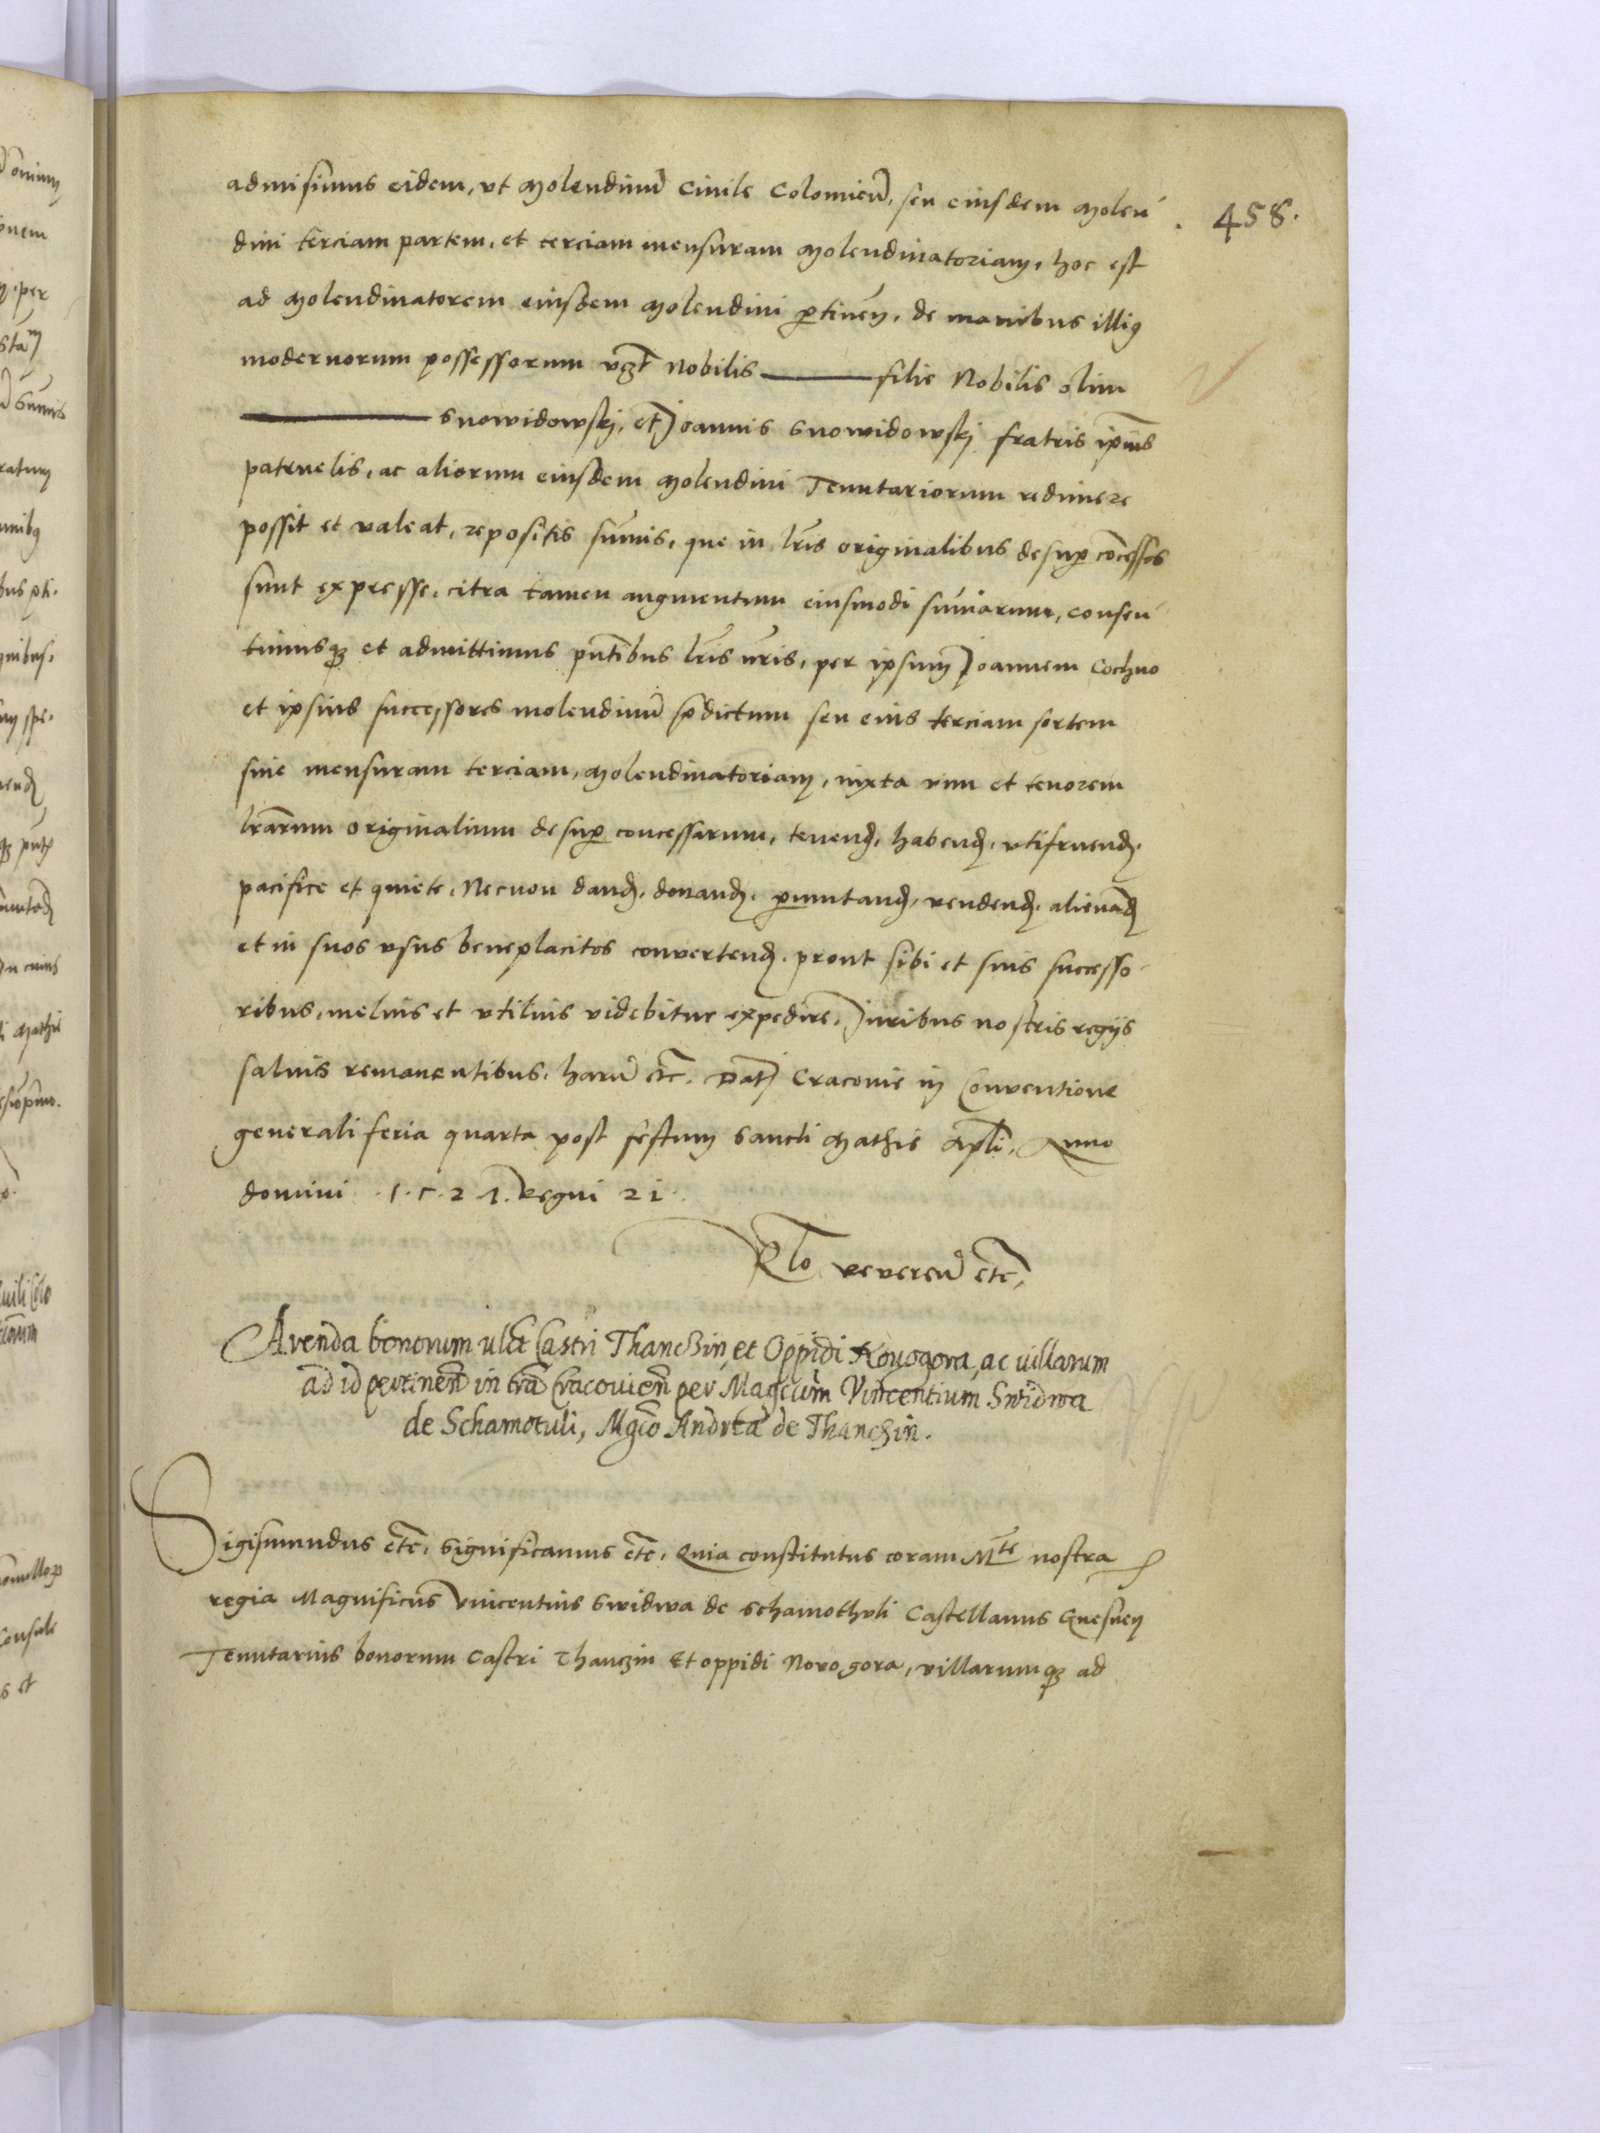 458.
admisimus eidem, vt Molendinũ Ciuile Colomieñ, seu eiusdem Molen¯
dini terciam partem, et terciam mensuram Molendinatoriam, hoc est
ad Molendinatorem eiusdem Molendini ꝑtineñ, de manibus illiꝰ
modernorum possessorum vꝫt Nobilis ——— filie Nobilis olim
——— Snowidowskj, et Joannis Snowidowskj fratris ipĩus
patruelis, ac aliorum eiusdem Molendini Tenutariorum redimere
possit et valeat, repositis sum̃is, que in lr̃is originalibus desuꝑ concessis
sunt expresse, citra tamen augmentum eiusmodi sum̃arum, consen¯
timusqꝫ et admittimus pñtibus lr̃is nr̃is, per ipsum Joannem Cochno
et ipsius successores molendinũ p̃dictum seu eius terciam sortem
siue mensuram terciam, Molendinatoriam, iuxta vim et tenorem
lr̃arum originalium desuꝑ concessarum, tenenđ, habenđ, vtifruenđ,
pacifice et quiete, Necnon danđ, donanđ, ꝑmutanđ, vendenđ, alienãđ
et in suos vsus beneplacitos convertenđ, prout sibi et suis successo¯
ribus, melius et vtilius videbitur expedire, Juribus nostris regijs
saluis remanentibus, harũ etc̃. Dat̃ Cracouie in Conuentione
generali feria quarta post festum Sancti Mathie Apl̃i, Anno
domini 1527. Regni 21.
Rl̃o Reuereñ etc̃,
Arenda bonorum vl̃t Castri Thanczin, et Oppidi Novogora, ac uillarum
ad id pertineñ in tr̃a Cracouieñ per Magcum̃ Vincentium Swidwa
de Schamotuli, Mgc̃o Andreæ de Thanczin.
Sigismundus etc̃, Significamus etc̃, Quia constitutus coram Mte nostra
regia Magnificus Vincentius Swidwa de Schamothuli Castellanus Gnesneñ
Tenutarius bonorum Castri Thanczin et oppidi Novogora, villarumqꝫ ad